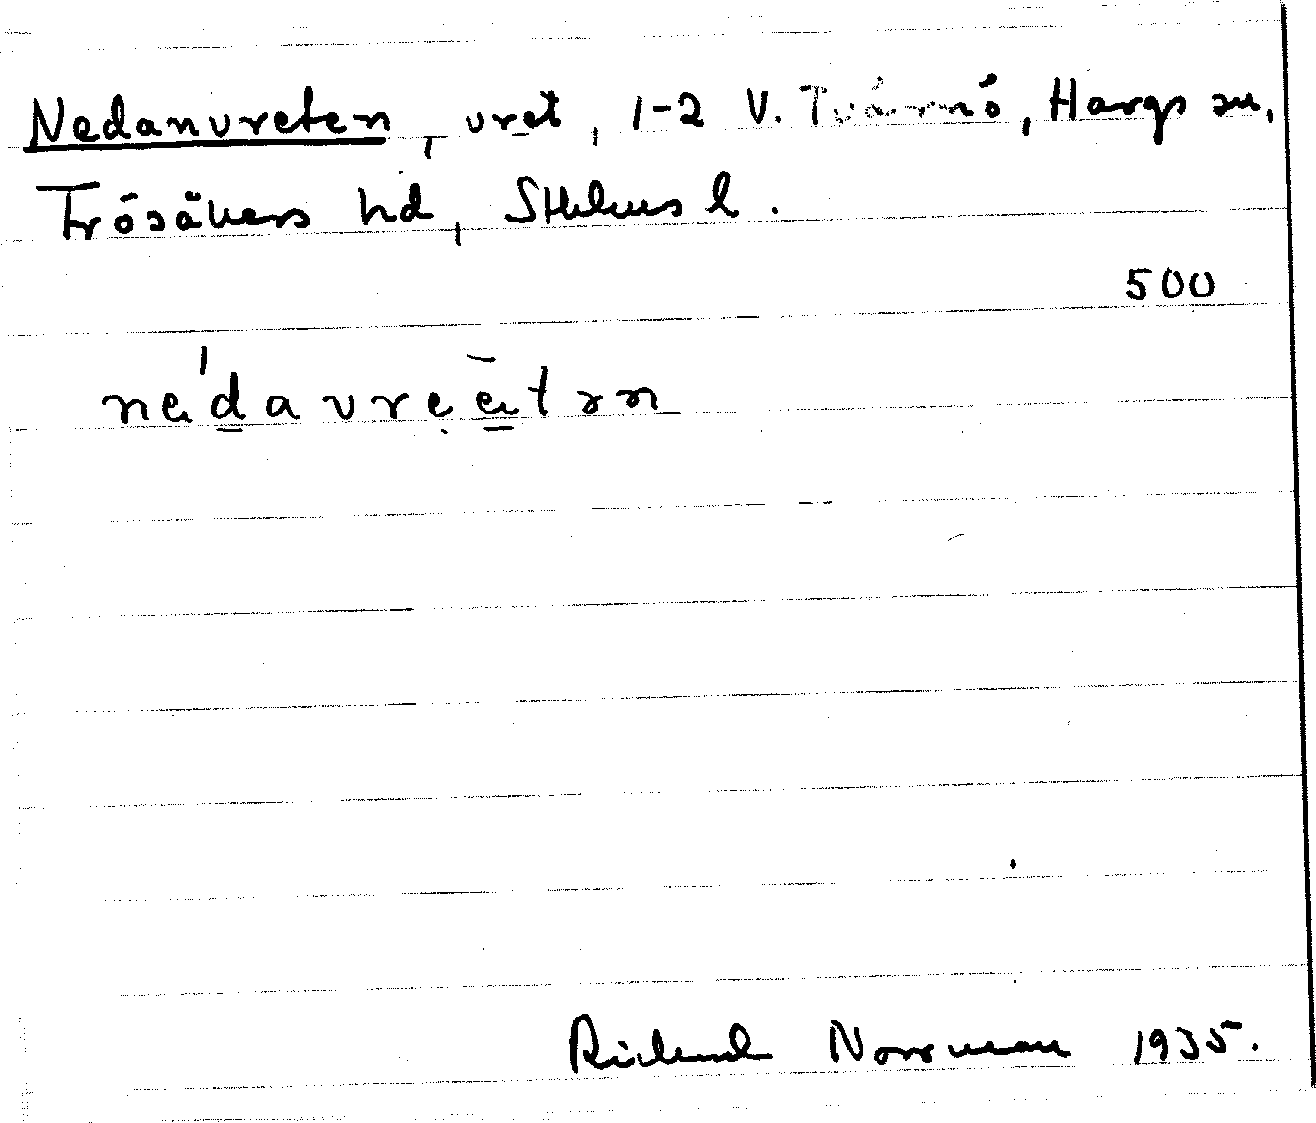 Nedanvreten, vret, 1-2 V. Tvärnö, Hargs sn,
Frösåkers hd, Sthlms l.
500
Rickard Norrman 1935.